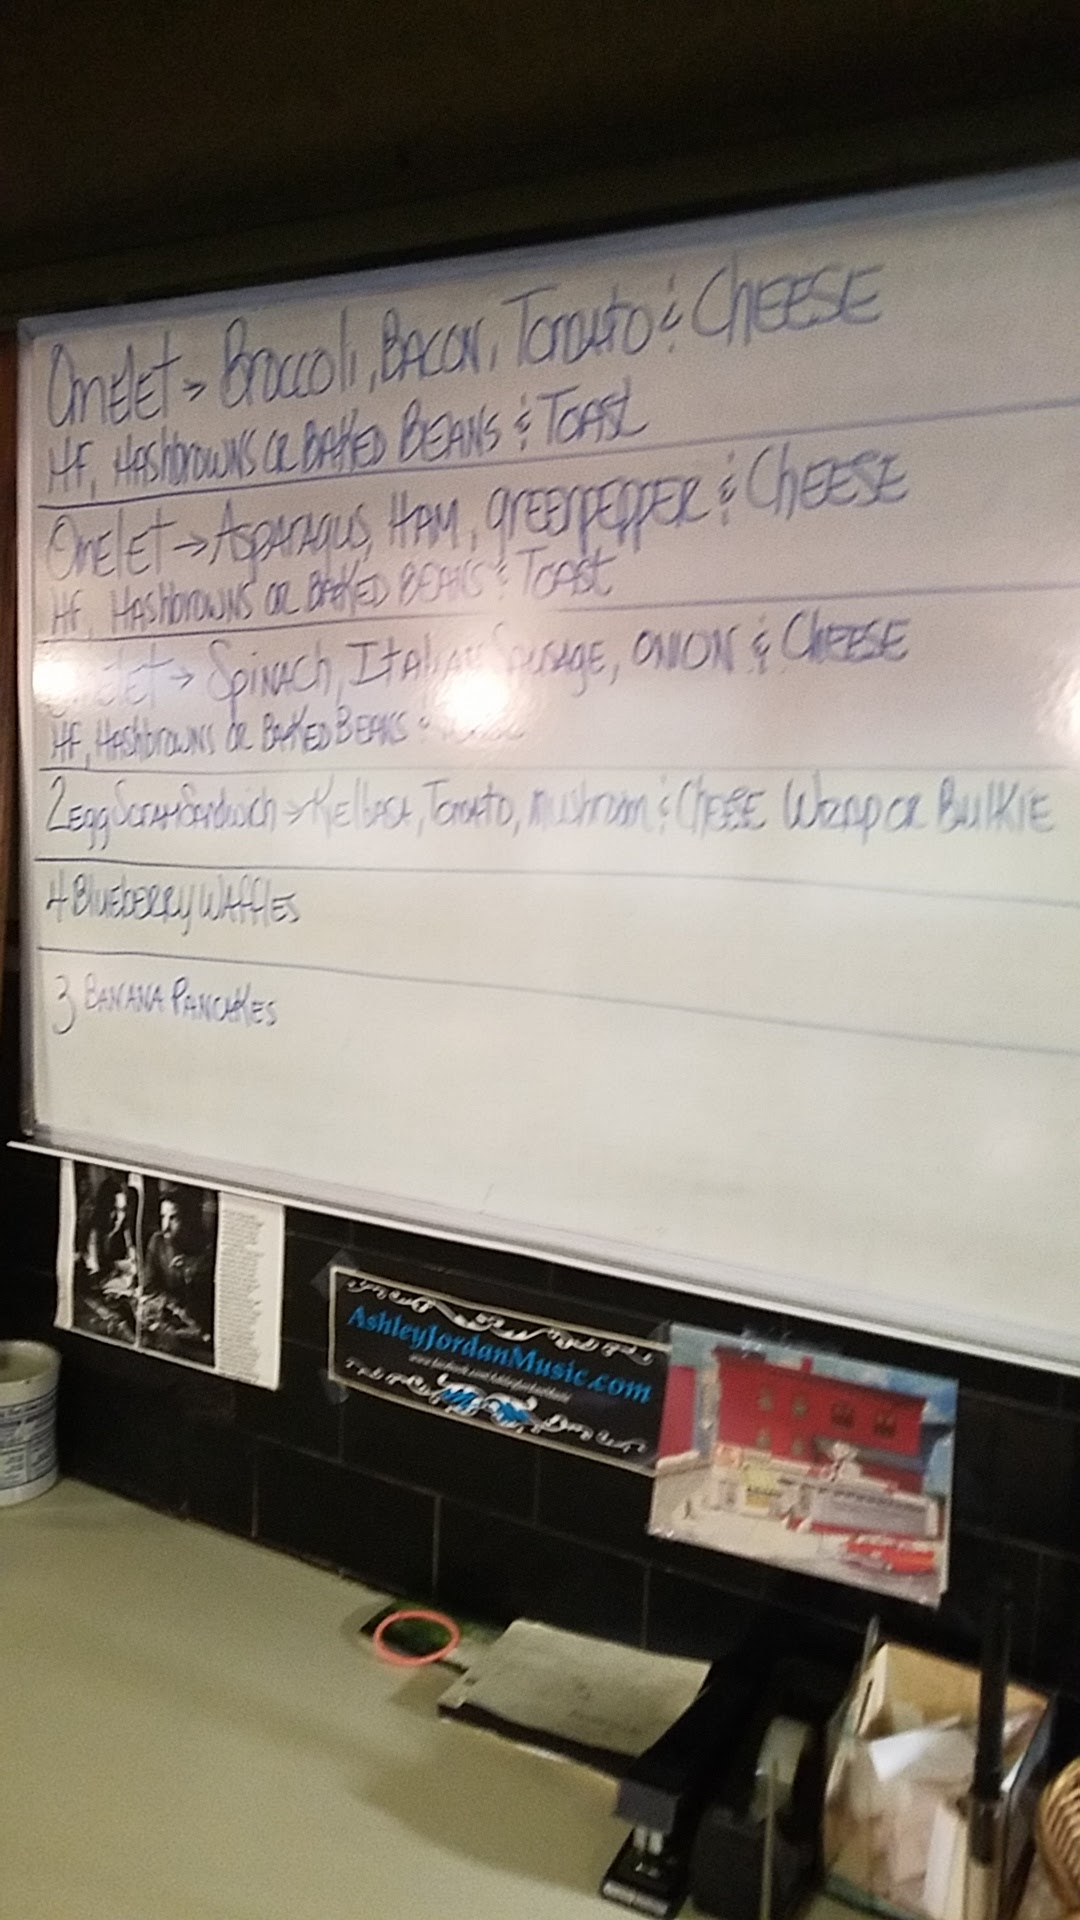 OmElEt → Broccoli, BACON, TomATo & ChEESE
HF, HAShbrowNS OR BAKED BEANS & ToAST
OmElET → ASpARAgUS, HAM, greenpeppER & ChEESE
HF, HAShbrowNS OR BAKED BEANS & ToAST
→ SpinACh, ITAliAN SAUSAgE, ONION & ChEESE
HF, HAShbrowNS OR BAKED BEANS &
2 Egg ScrAm SANdwich → KielbASA, TomATo, mushroom & ChEESE WrAp OR BulKIE
4 BluEbERRy WAfflES
3 BANANA PANCAKES
AshleyJordanMusic.com